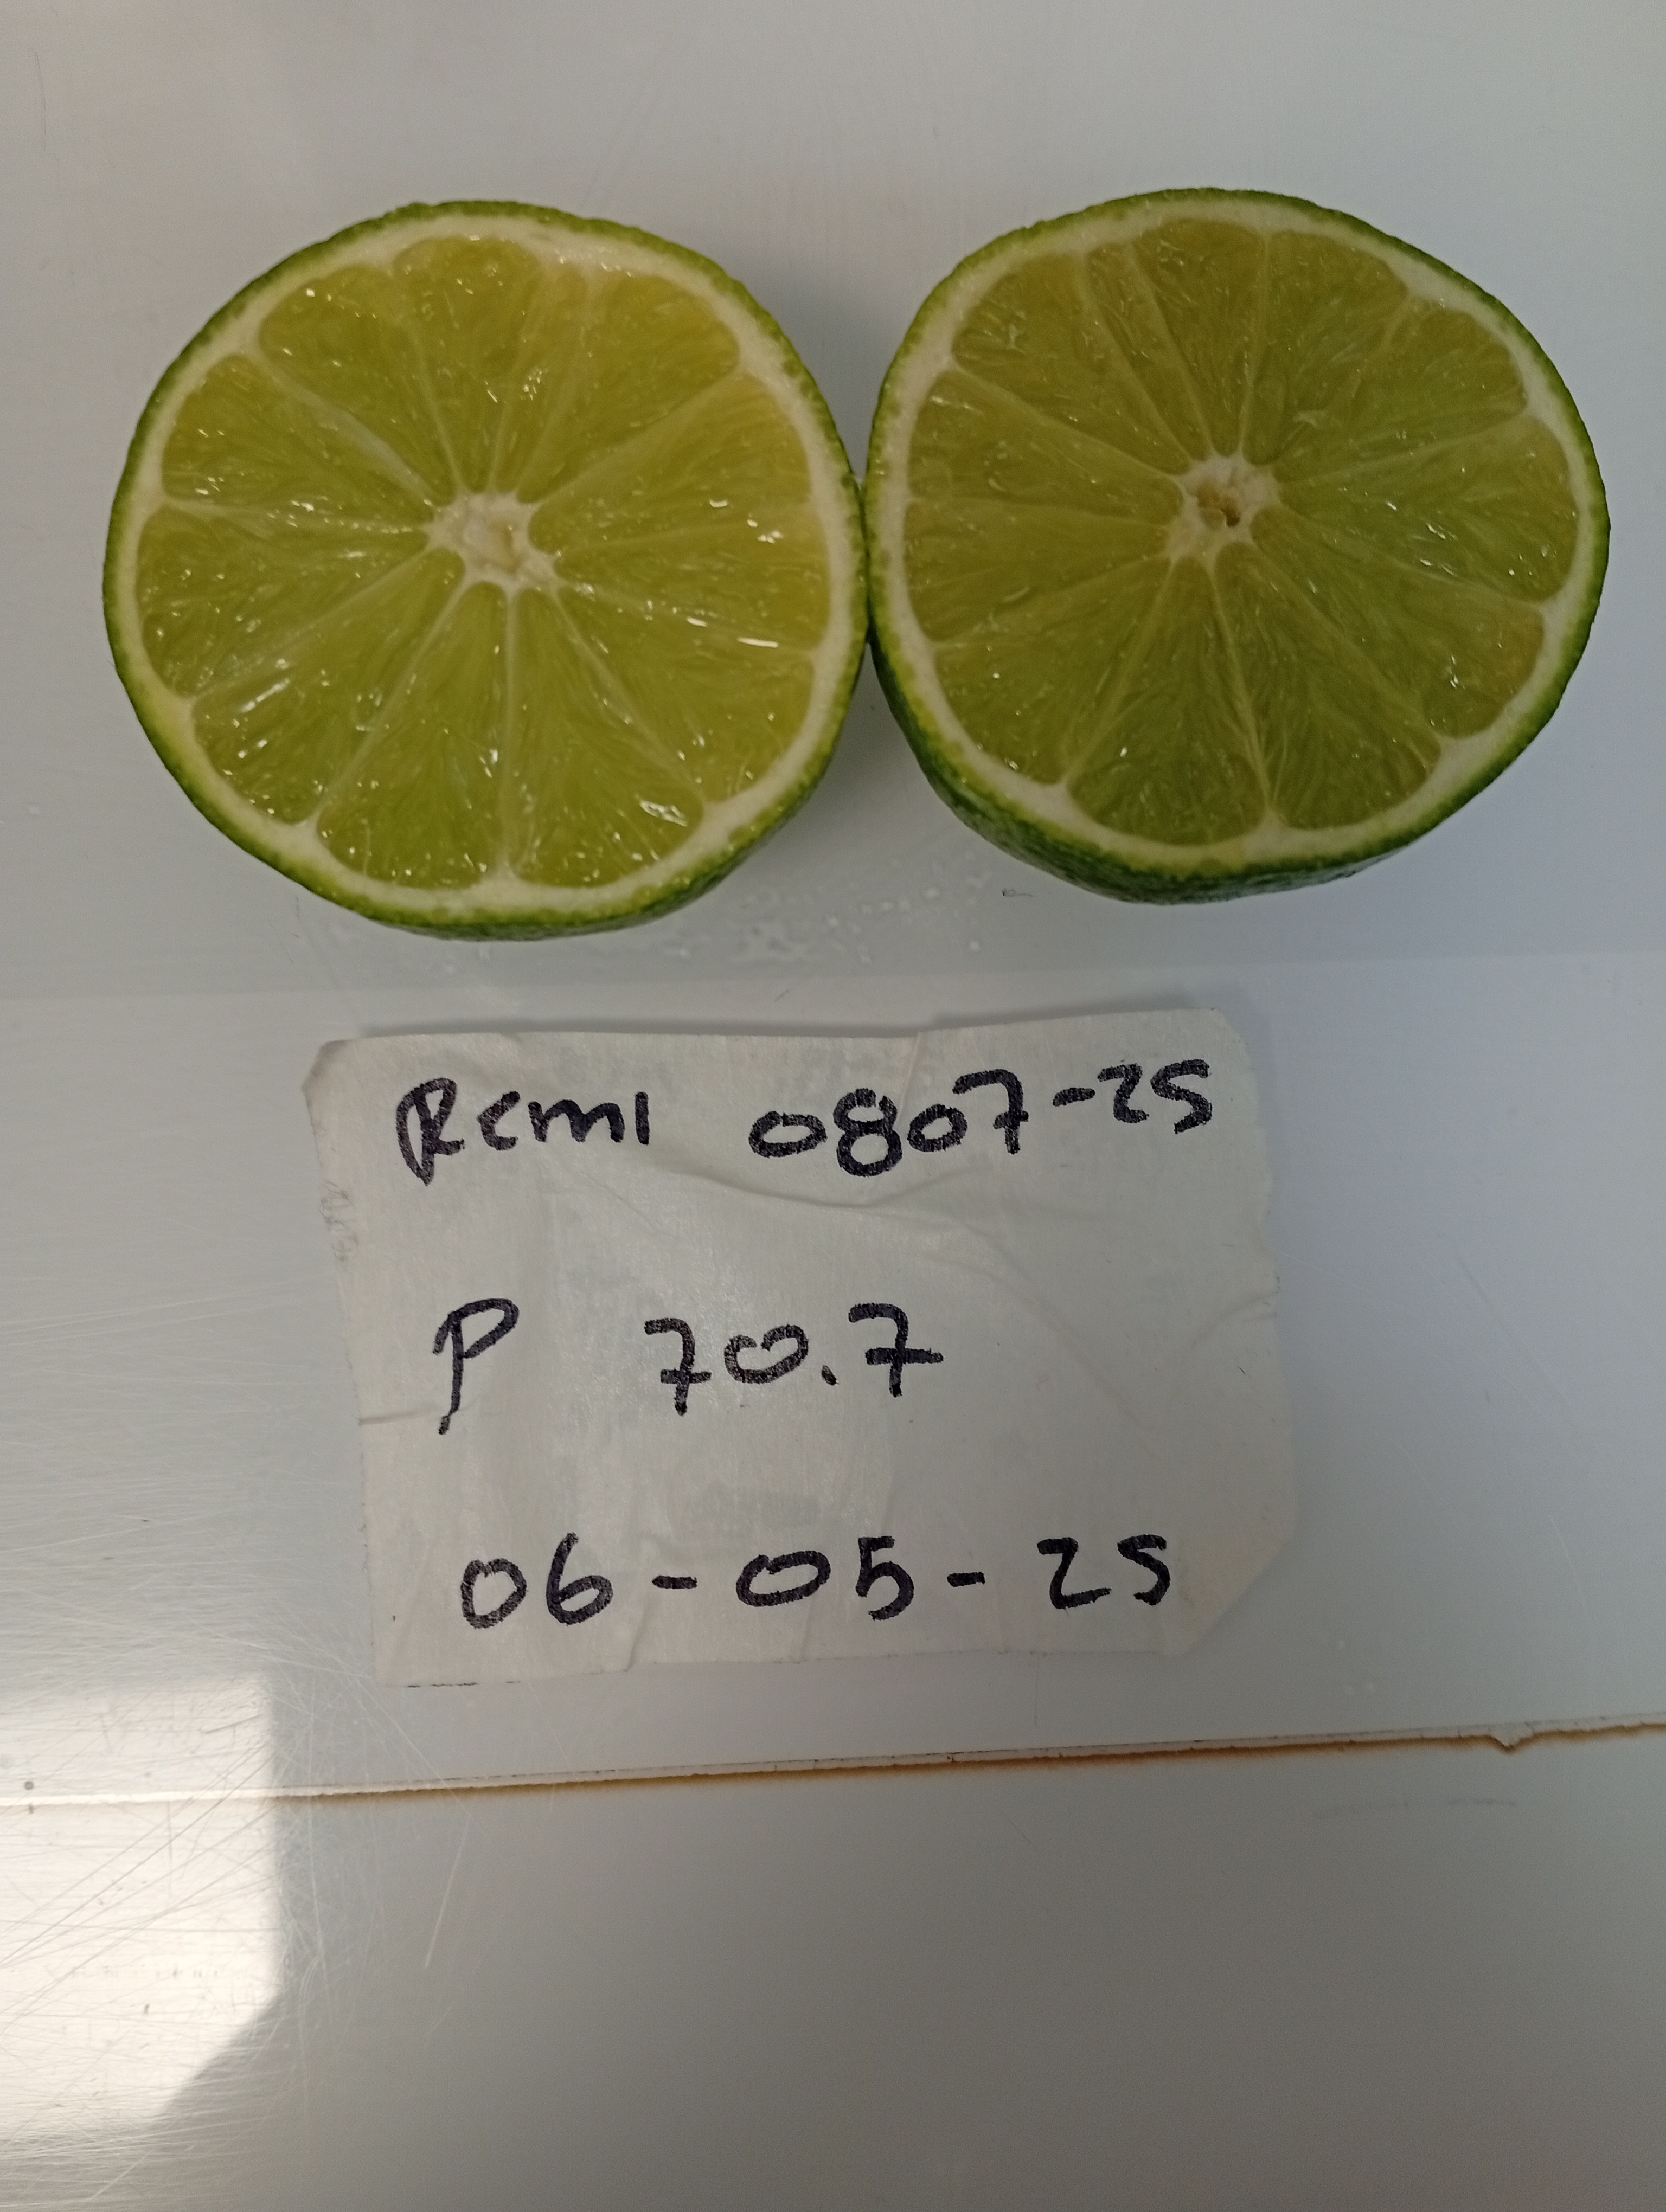 Remi 0807-25
P 70.7
06-05-25